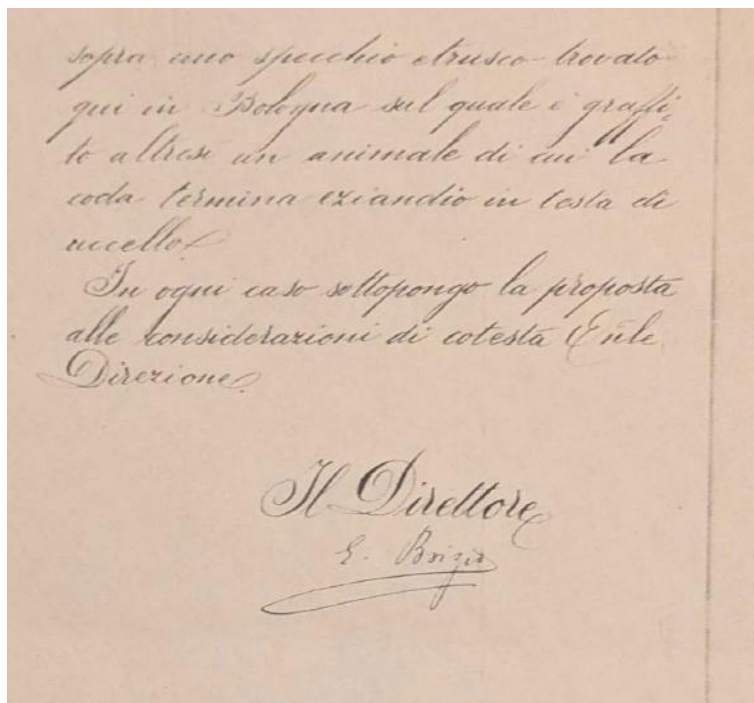 sopra uno specchio etrusco trovato
qui in Bologna sul quale è graffi,
to altresì un animale di cui la
coda termina eziandio in testa di
uccello.
In ogni caso sottopongo la proposta
alle considerazioni di cotesta
Direzione.
Il Direttore
E. Brizio